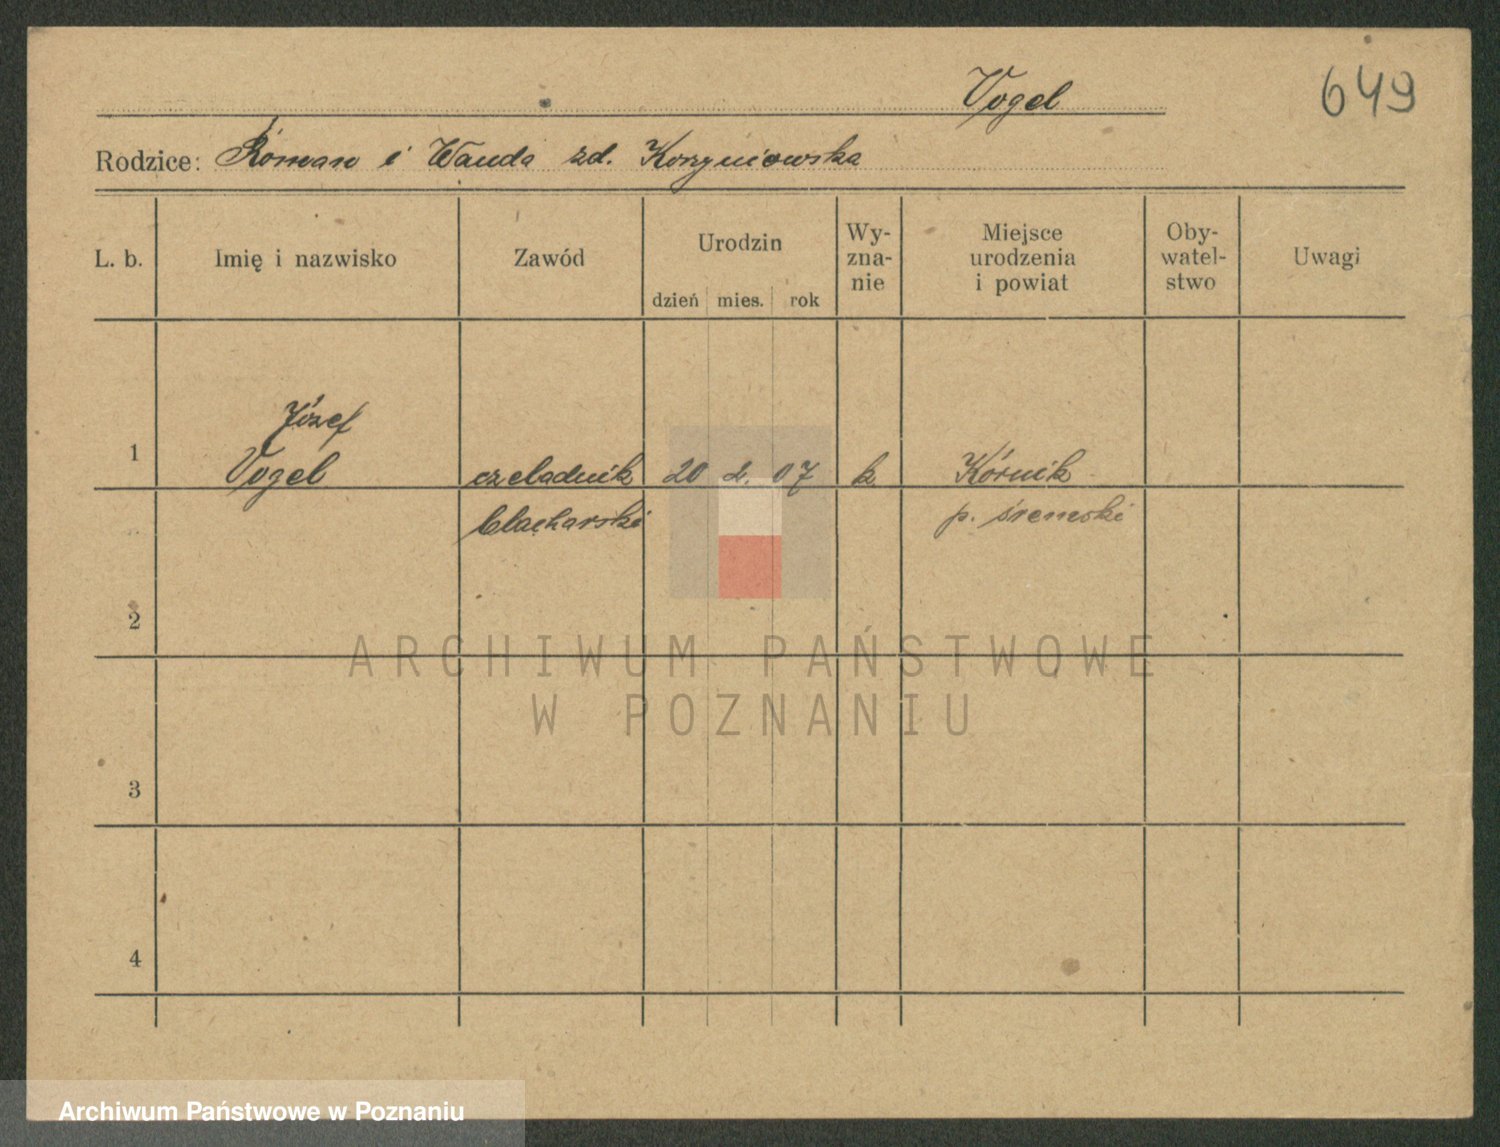 Vogel
649
Rodzice: Roman i Wanda zd. Korzyniowska
L. b.
Imię i nazwisko
Zawód
Urodzin
dzień mies. rok
Wy-
zna-
nie
Miejsce
urodzenia
i powiat
Oby-
watel-
stwo
Uwagi
1
Józef
Vogel
czeladnik
blacharski
20 2. 07
k.
Kórnik
p. śremski
2
3
4
ARCHIWUM PAŃSTWOWE
W POZNANIU
Archiwum Państwowe w Poznaniu